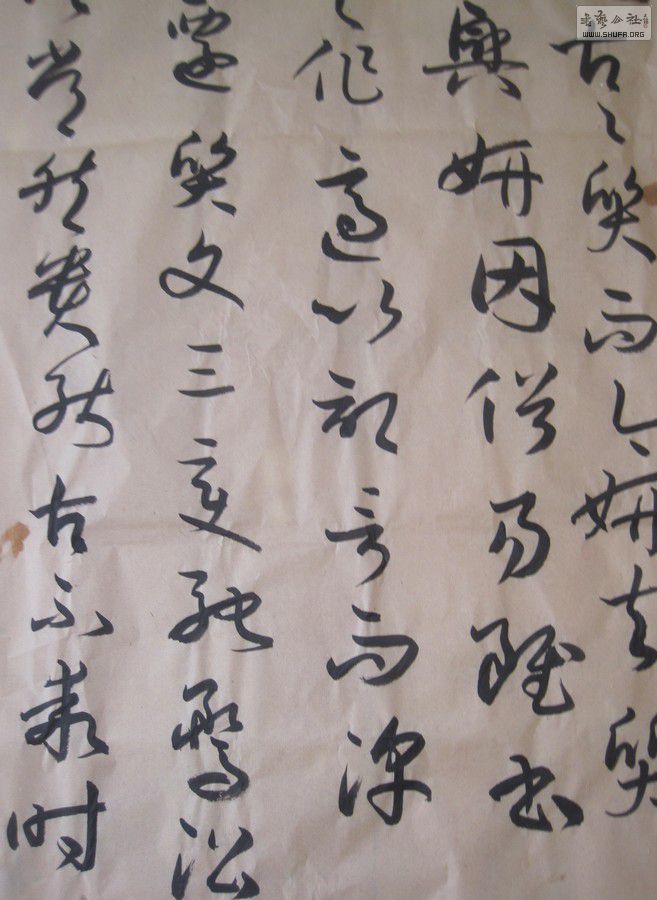 古之質而今妍夫質
興妍因俗易雖書
作適以記言而淳
遷質文三變馳騖沿
常然貴能古不乖時
書藝公社
WWW.SHUFA.ORG